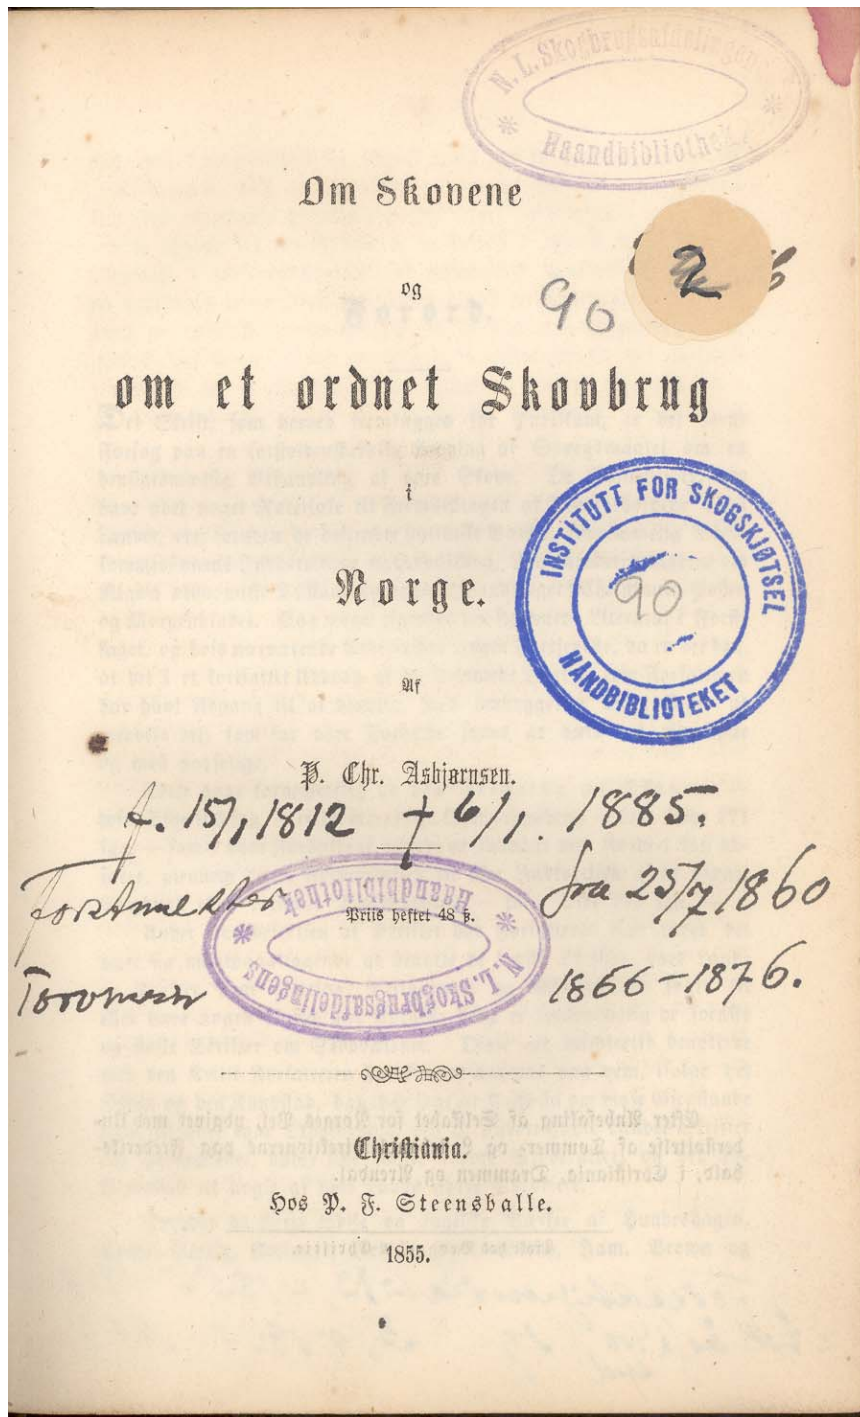 N. L. Skogbrugsafdelingens
Haandbibliothek
Om Skovene
og
2
90
om et ordnet Skovbrug
i
INSTITUTT FOR SKOGSKJØTSEL
90
HANDBIBLIOTEKET
Norge.
Af
P. Chr. Asbjørnsen.
f. 15/1 1812 † 6/1. 1885.
Forstmester fra 25/7 1860
Priis heftet 48 ß.
N. L. Skogbrugsafdelingens
Haandbibliothek
Torvmester 1866–1876.
Christiania.
Hos P. F. Steensballe.
1855.